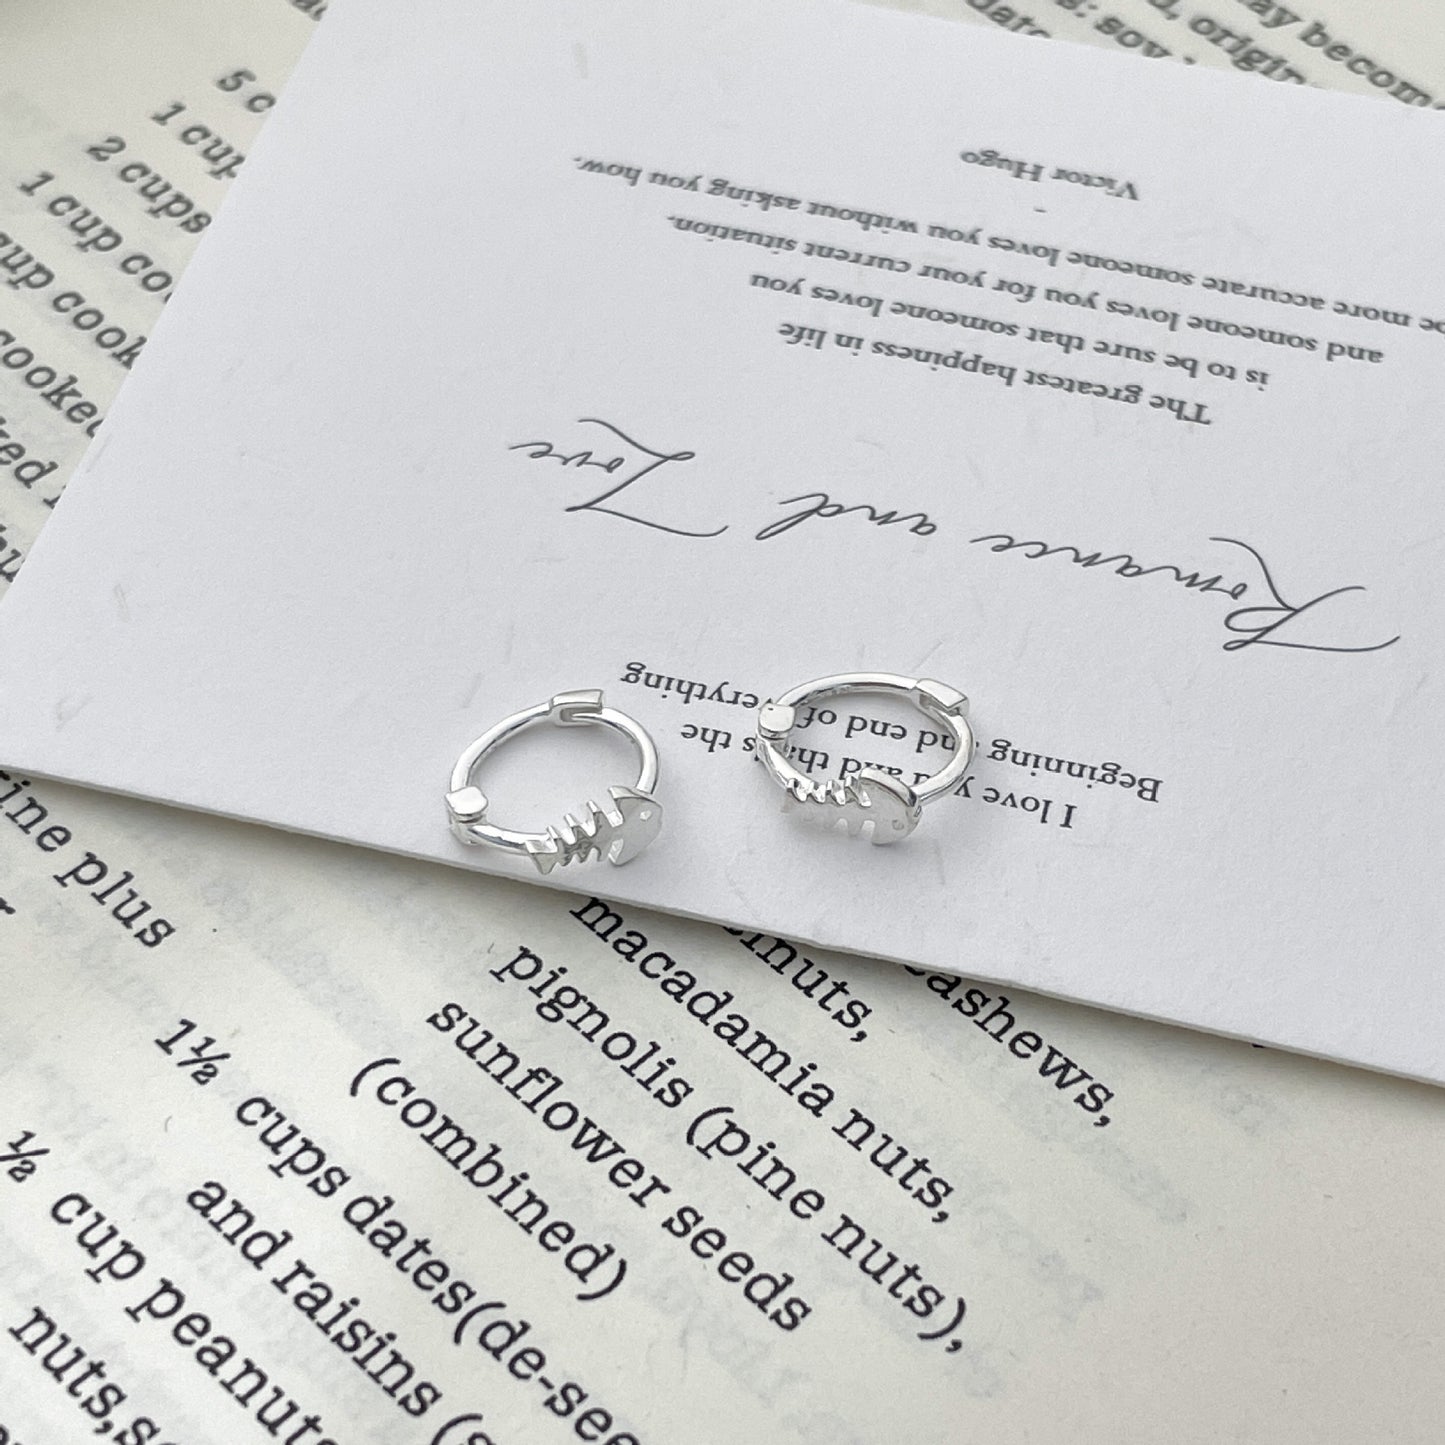 I love you and that's the
Beginning and end of everything
Romance and Love
The greatest happiness in life
is to be sure that someone loves you
and someone loves you for your current situation.
be more accurate someone loves you without asking you how.
-
Victor Hugo
5 c
1 cup
2 cups
1 cup co
cup cook
cooked
ay becom
, origin
: soy
cashews,
nuts,
macadamia nuts,
pignolis (pine nuts),
sunflower seeds
(combined)
1½ cups dates(de-see
and raisins (s
½ cup peanut
nuts,s
ine plus
r